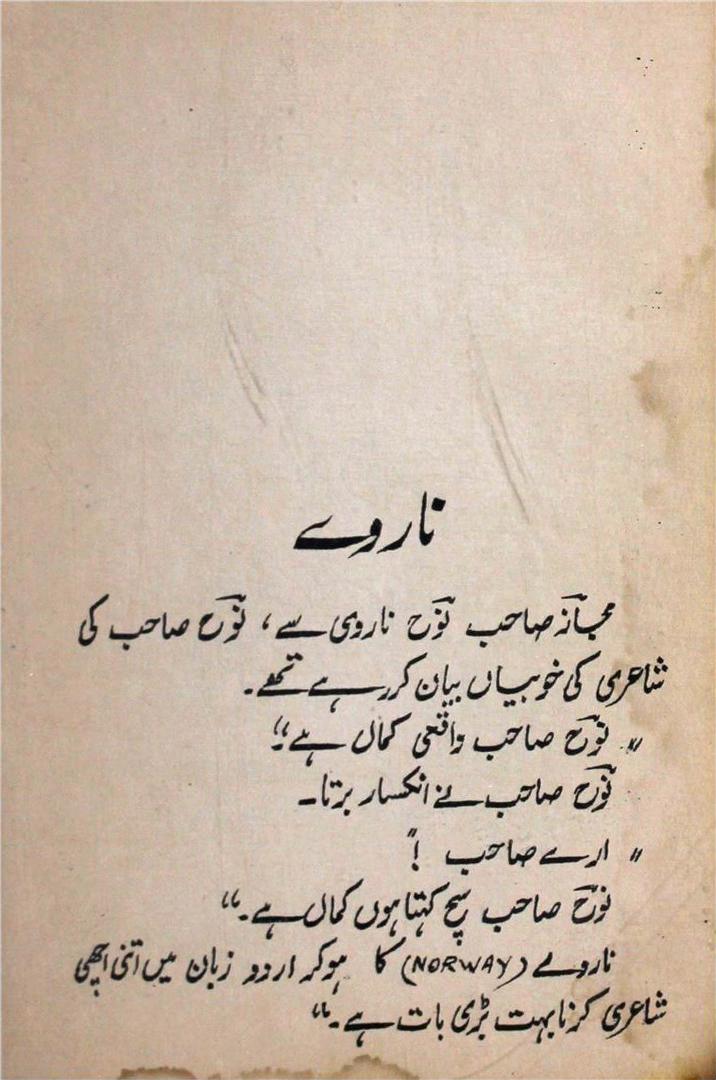 ناروے
مجاز صاحب نوح ناروی سے، نوح صاحب کی
شاعری کی خوبیاں بیان کر رہے تھے۔
"نوح صاحب واقعی کمال ہے"۔
نوح صاحب نے انکسار برتا۔
"ارے صاحب !"
نوح صاحب سچ کہتا ہوں کمال ہے۔"
ناروے (NORWAY) کا ہو کر اردو زبان میں اتنی اچھی
شاعری کرنا بہت بڑی بات ہے۔"